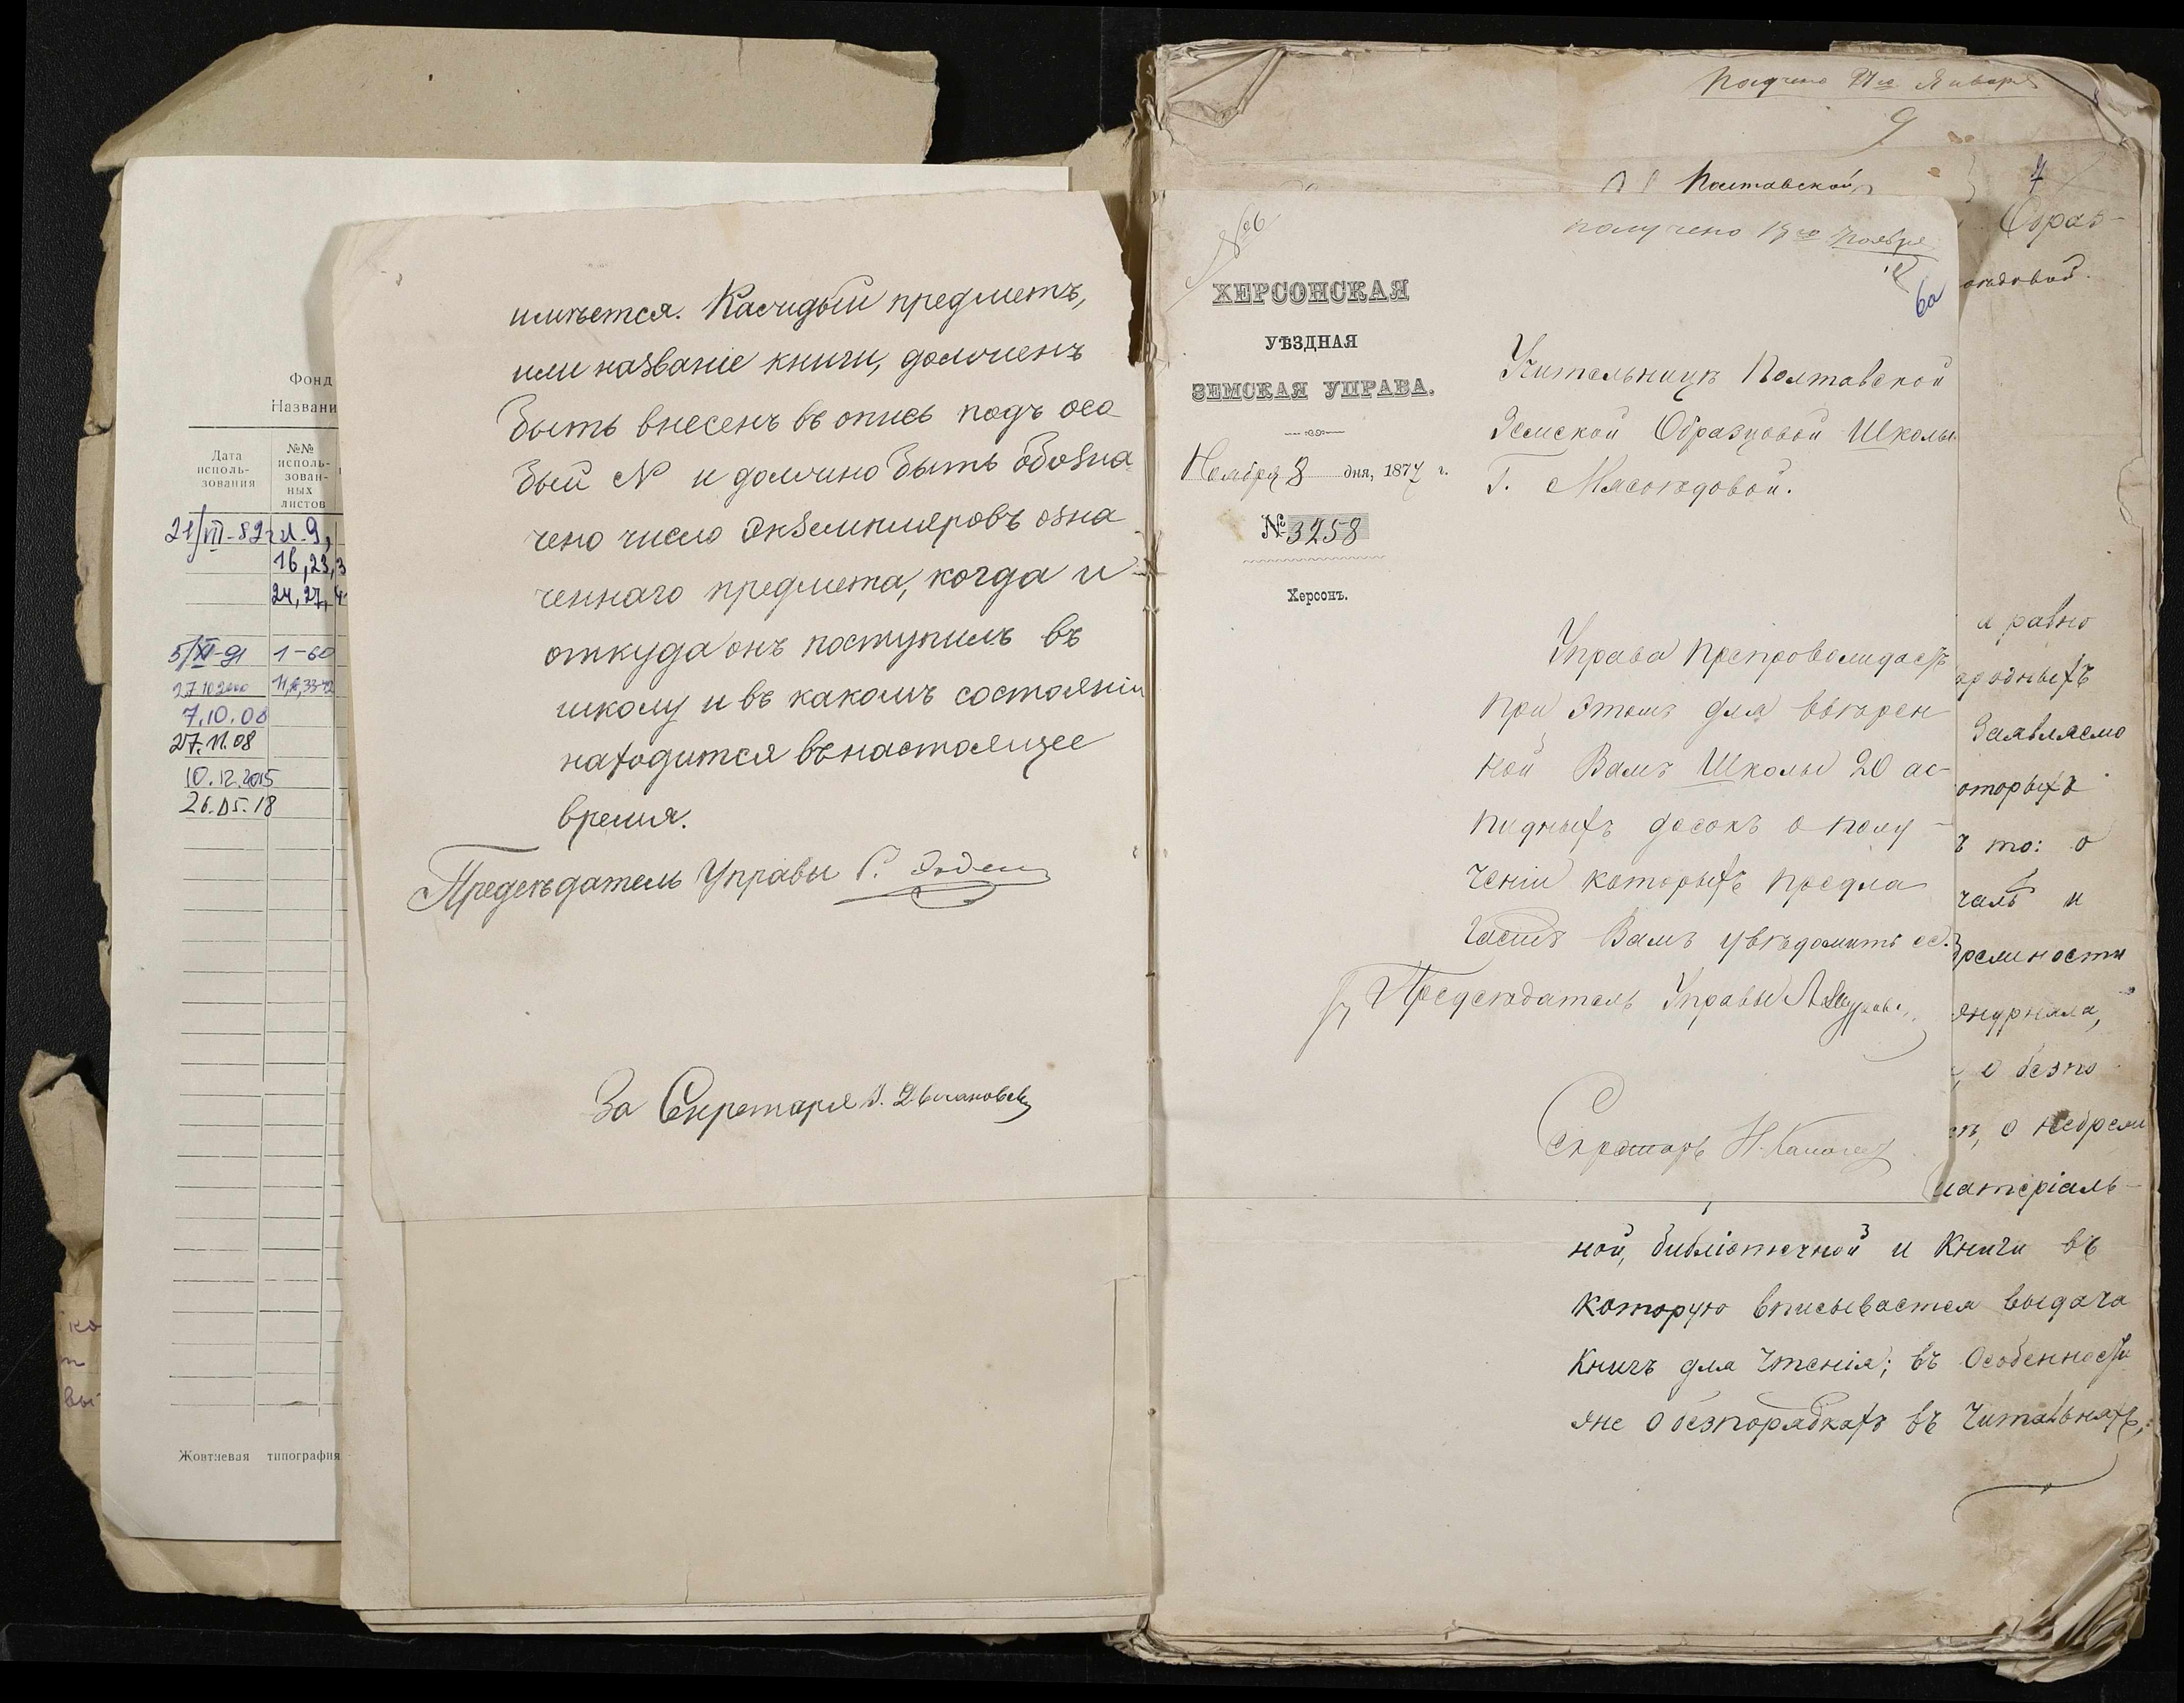 Фонд
Названи
Дата
исполь-
зования
№№
исполь-
зован-
ных
листов
21/VII-82г л. 9,
16, 23, 3
24, 27, 4
5/XI-91 1-60
27.10.2000
7.10.08
27.11.08
10.12.2015
26.05.18
Жовтневая типография
имѣется. Каждый предметъ,
или названіе книги, долженъ
быть внесенъ въ опись подъ осо
бый № и должно быть обозна
чено число экземпляровъ озна
ченнаго предмета, когда и
откуда онъ поступилъ въ
школу и въ какомъ состояніи
находится въ настоящее
время.
Предсѣдатель Управы Г.
За Секретаря
получено 21го Января
9
Полтавской
7
Образ-
оѣдовой.
№6
получено 13го Ноября
6а
ХЕРСОНСКАЯ
УѢЗДНАЯ
ЗЕМСКАЯ УПРАВА.
Ноября 8 дня, 1877 г.
№ 3258
Херсонъ.
Учительницѣ Полтавской
Земской Образцовой Школы
Г. Мясоѣдовой.
Управа препровождаетъ
при этомъ для ввѣрен
ной Вамъ Школы 20 ас-
пидныхъ досокъ о полу-
ченіи которыхъ предла
гаетъ Вамъ увѣдомить ее.
Предсѣдатель Управы
Секретарь Н.
и равно
ародныхъ
Заявляемо
оторыхъ
ъ то: о
чаль и
бремности
журнала,
о безпо
о небреж
матеріаль-
ной, библіотечной и книги въ
которую вписывается выдача
книгъ для чтенія; въ особенности
же о безпорядкахъ въ читальняхъ,